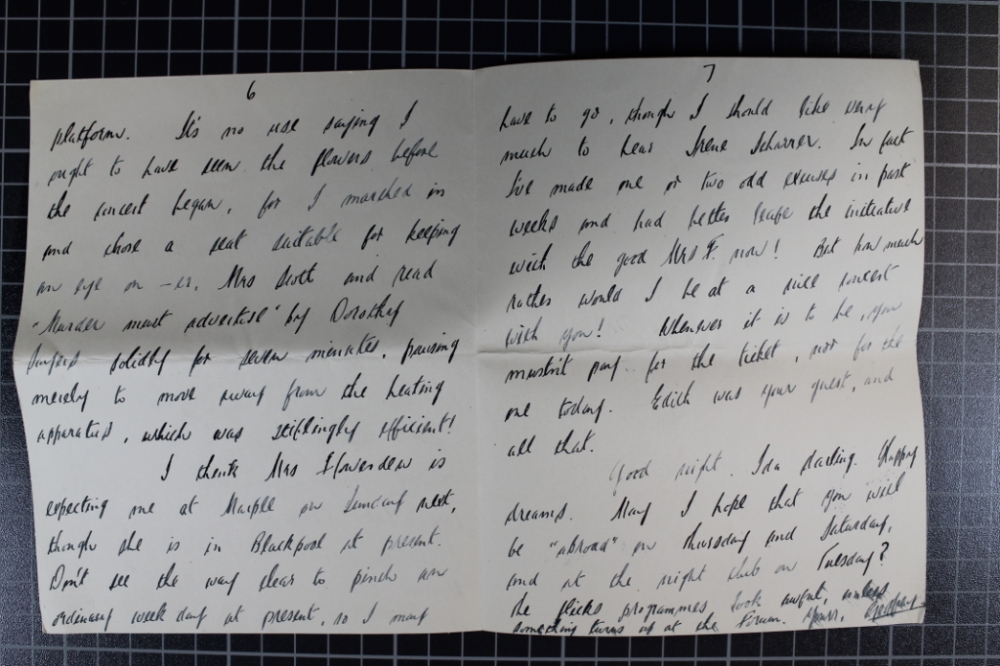 6
platform. It's no use saying I
ought to have seen the flowers before
the concert began, for I marched in
and chose a seat suitable for keeping
an eye on - er, Mrs Scott and read
"Murder must advertise" by Dorothy
Sayers solidly for seven minutes, pausing
merely to move away from the heating
apparatus, which was stiflingly efficient!
I think Mrs Flowerdew is
expecting me at Marple on Sunday next,
though she is in Blackpool at present.
Don't see the way clear to pinch an
ordinary week day at present, so I may
7
have to go, though I should like very
much to hear Irene Scharrer. In fact
I've made one or two odd excuses in past
weeks and had better leave the initiative
with the good Mrs F. now! But how much
rather would I be at a nice concert
with you! Whenever it is to be, you
mustn't pay for the ticket, nor for the
one today. Edith was your guest, and
all that.
Good night, Ida darling. Happy
dreams. May I hope that you will
be "abroad" on Thursday and Saturday,
and at the night club on Tuesday?
The flicks programmes look awful, unless
something turns up at the Forum. Yours,